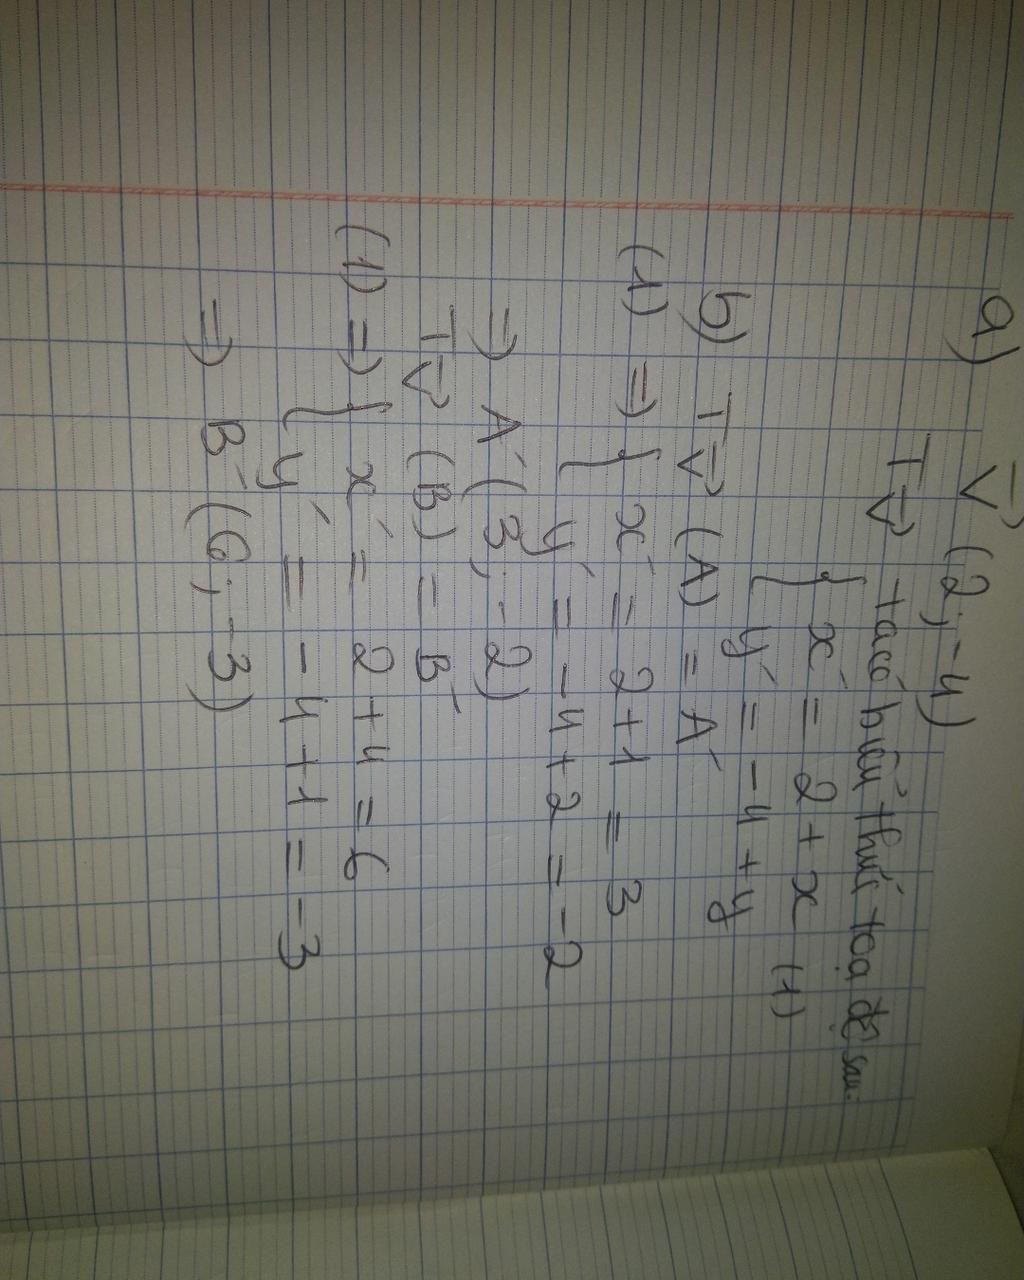 a) v⃗ (2; -4)
Tv⃗ ta có biểu thức toạ độ sau:
{ x' = 2 + x (1)
y' = -4 + y
b) Tv⃗ (A) = A'
(1) => { x' = 2 + 1 = 3
y' = -4 + 2 = -2
=> A' (3; -2)
Tv⃗ (B) = B'
(1) => { x' = 2 + 4 = 6
y' = -4 + 1 = -3
=> B' (6; -3)